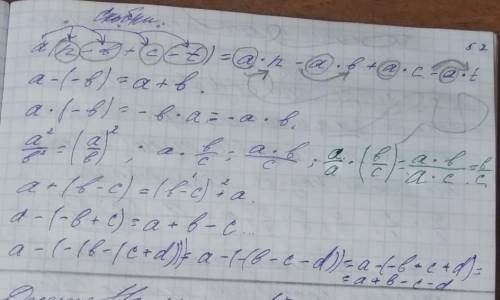 скобки.
52
a(n - b + c - t) = a·n - a·b + a·c - a·t
a-(-b) = a+b.
a·(-b) = -b·a = -a·b.
a²/b² = (a/b)² ; a·b/c = a·b/c ; a/a·(b/c) = a·b/a·c = b/c.
a+(b-c) = (b-c)+a.
a-(-b+c) = a+b-c...
a-(-(b-(c+d))) = a-(-(b-c-d)) = a-(-b+c+d) =
= a+b-c-d